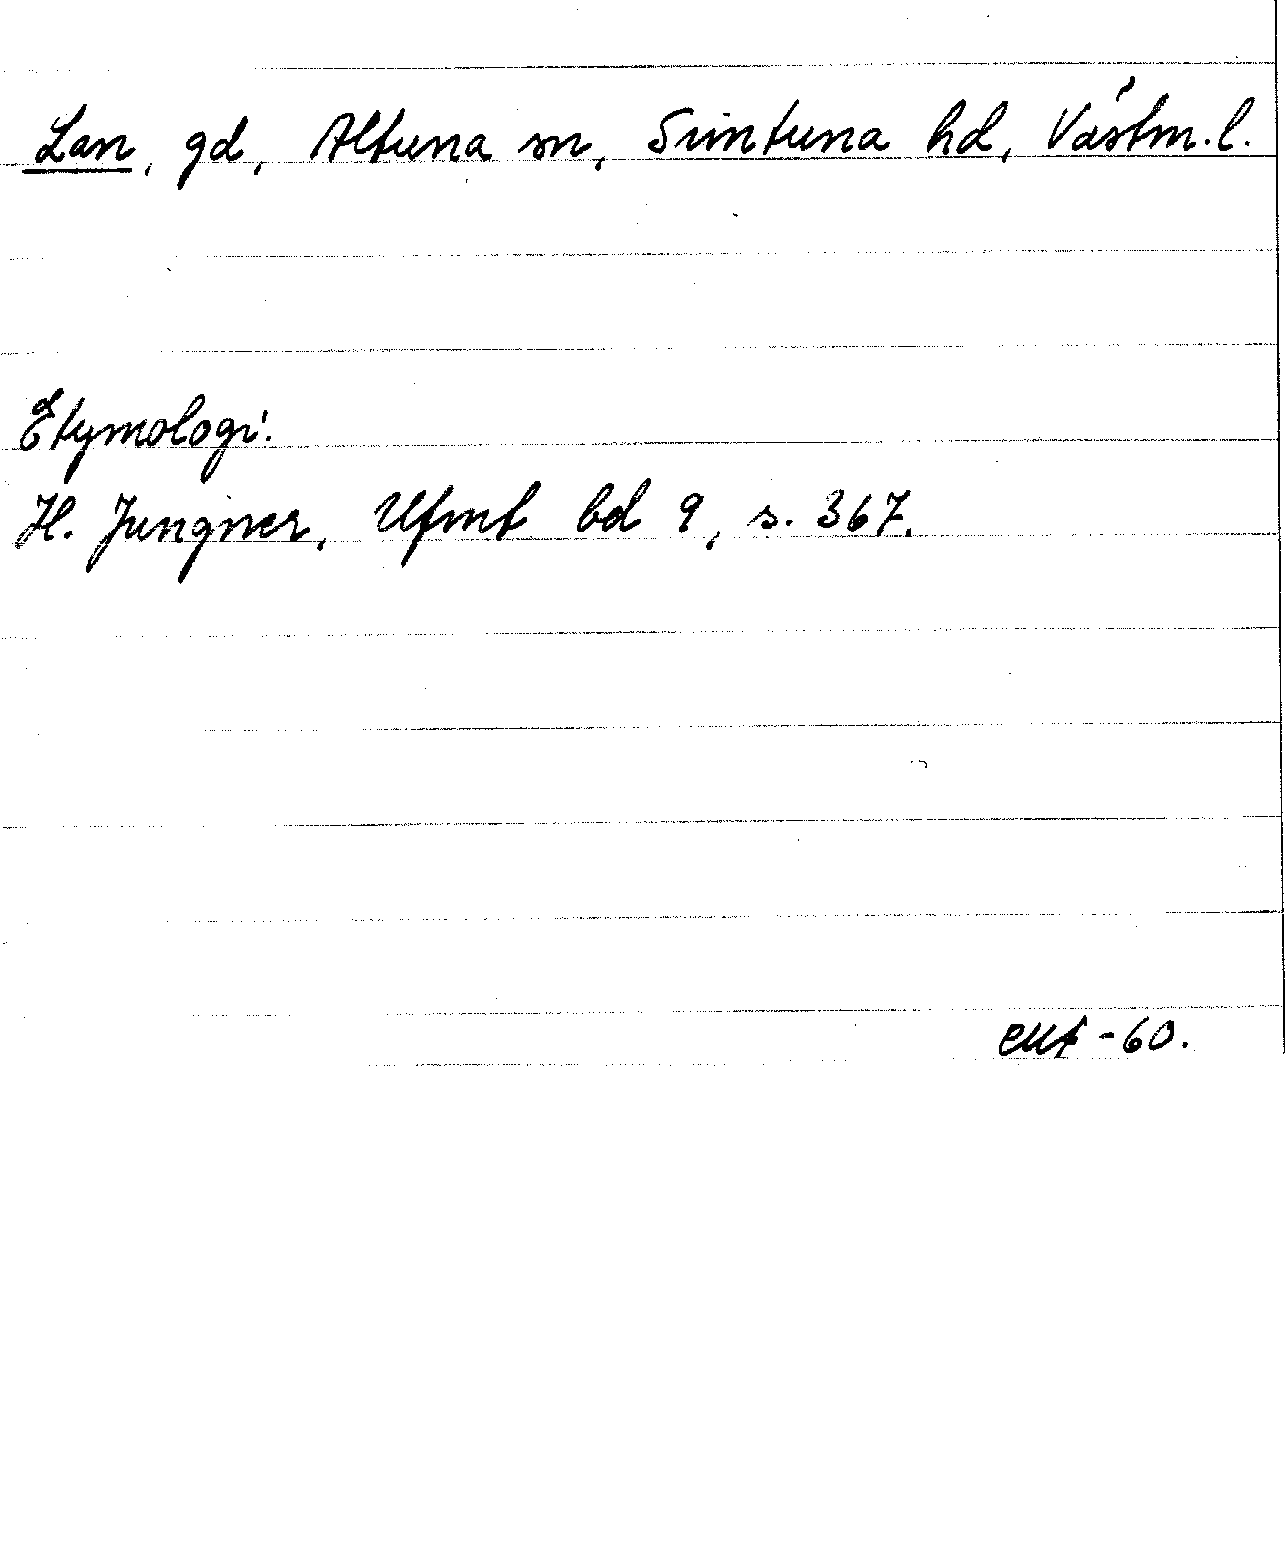 Lan, gd, Altuna sn, Simtuna hd, Västm. l.
Etymologi.
H. Jungner, Ufmt bd 9, s. 367.
-60.